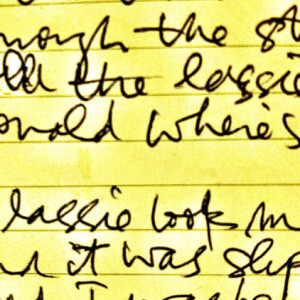 nough the st
ll the lassie
onald where's
lassie look m
nd it was slip